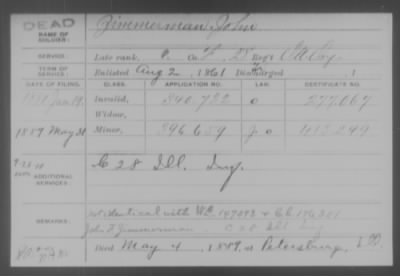 DEAD
NAME OF SOLDIER: Zimmerman, John
SERVICE: Late rank, P. Co. F, 28 Reg't
TERM OF SERVICE: Enlisted Aug 2, 1861 Discharged , 1
DATE OF FILING. CLASS. APPLICATION NO. LAW. CERTIFICATE NO.
Jan 19. Invalid, 340,722 277,067
Widow,
1889 May 31 Minor, 396,659 413,249
ADDITIONAL SERVICES: C 28 Ill. Inf.
REMARKS: not identical with
John F Zimmerman C 28 Ill Inf
Died May 4, 1889, at Petersburg, Ill.